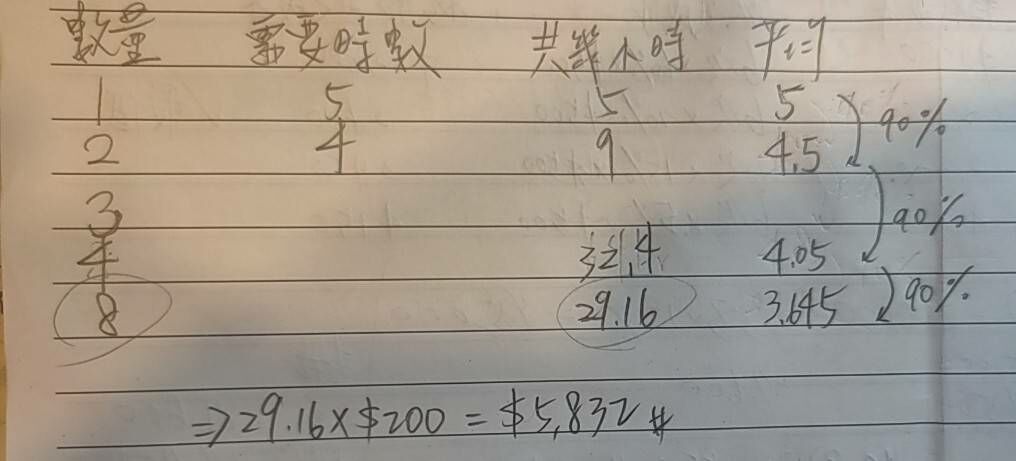 數量 需要時數 共幾小時 平均
1 5 5 5
2 4 9 4.5 90%
3 90%
4 4.05
8 29.16 3.645 90%
⇒ 29.16 x $200 = $5,832 #